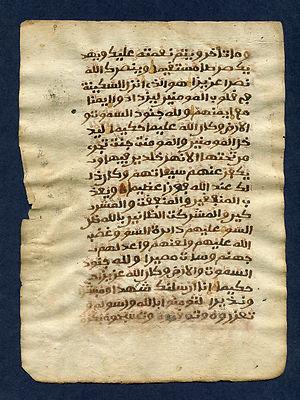 وما تاخر ويتم نعمته عليك ويهد
يك صرطا مستقيما وينصرك الله
نصرا عزيزا هو الذى انزل السكينة
في قلوب المومنين ليزدادوا ايمنا
مع ايمنهم ولله جنود السموت و
الارض وكان الله عليما حكيما ليد
خل المومنين والمومنت جنت تجر
ى من تحتها الانهر خلدين فيها و
يكفر عنهم سياتهم وكان ذا
لك عند الله فوزا عظيما ويعذ
ب المنفقين والمنفقت والمشر
كين والمشركت الظانين بالله ظن
السوء عليهم دايرة السوء وغضب
الله عليهم ولعنهم واعد لهم
جهنم وسات مصيرا ولله جنود
السموت والارض وكان الله عزيزا
حكيما انا ارسلنك شهدا ومبشرا
ونذيرا لتومنوا بالله ورسوله و
تعزروه وتوقروه وتسبحوه بكرة